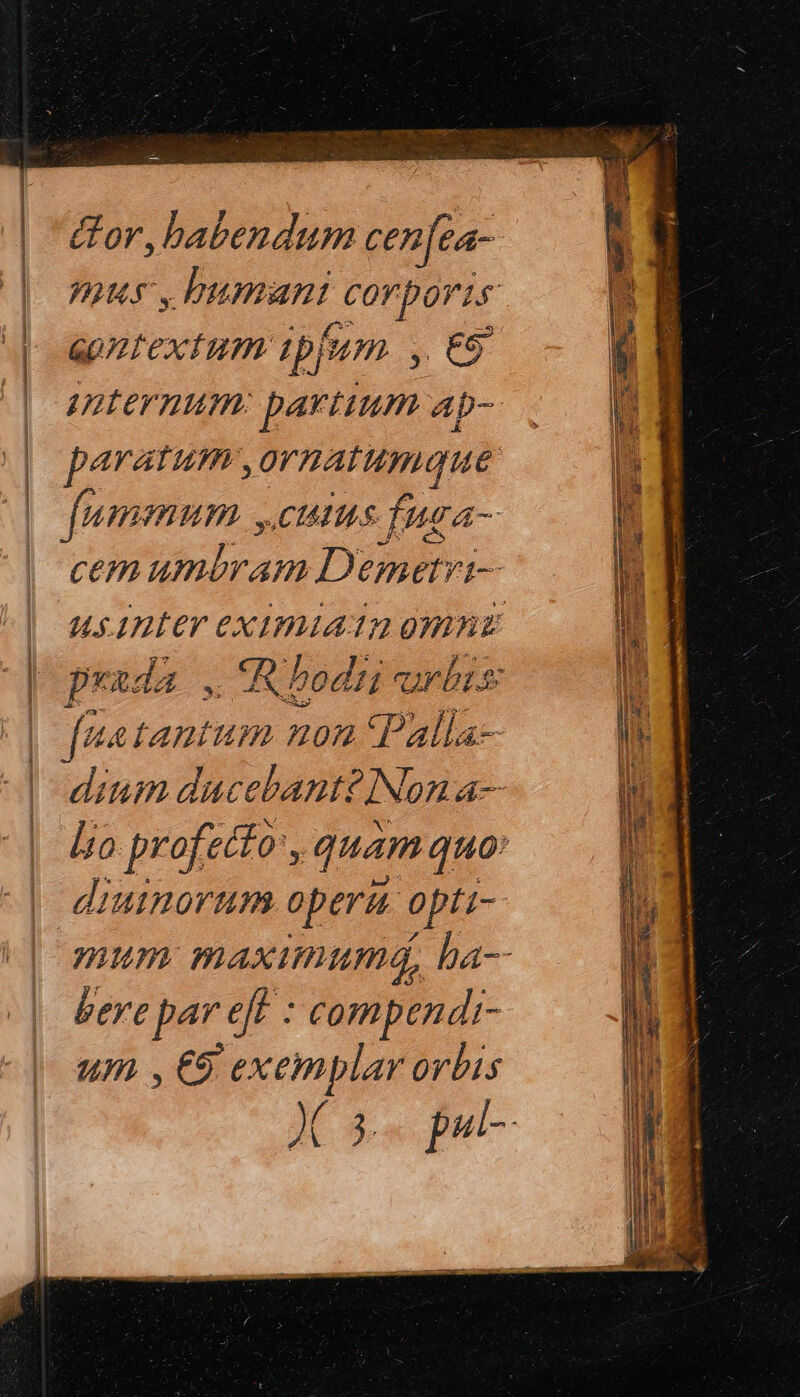 ctor, habendum censea-
mus, humani corporis
contextum ipsum, &
internum partium ap-
paratum, ornatumque
summum, cuius fuga-
cem umbram Demetri-
us inter eximia in omni
præda, Rhodij vrbis
sua tantum non Palla-
dium ducebant? Non a-
lio profectò, quàm quo
diuinorum operũ opti-
mum maximumq; ha-
bere par est: compendi-
um, & exemplar orbis
)( 3 pul-